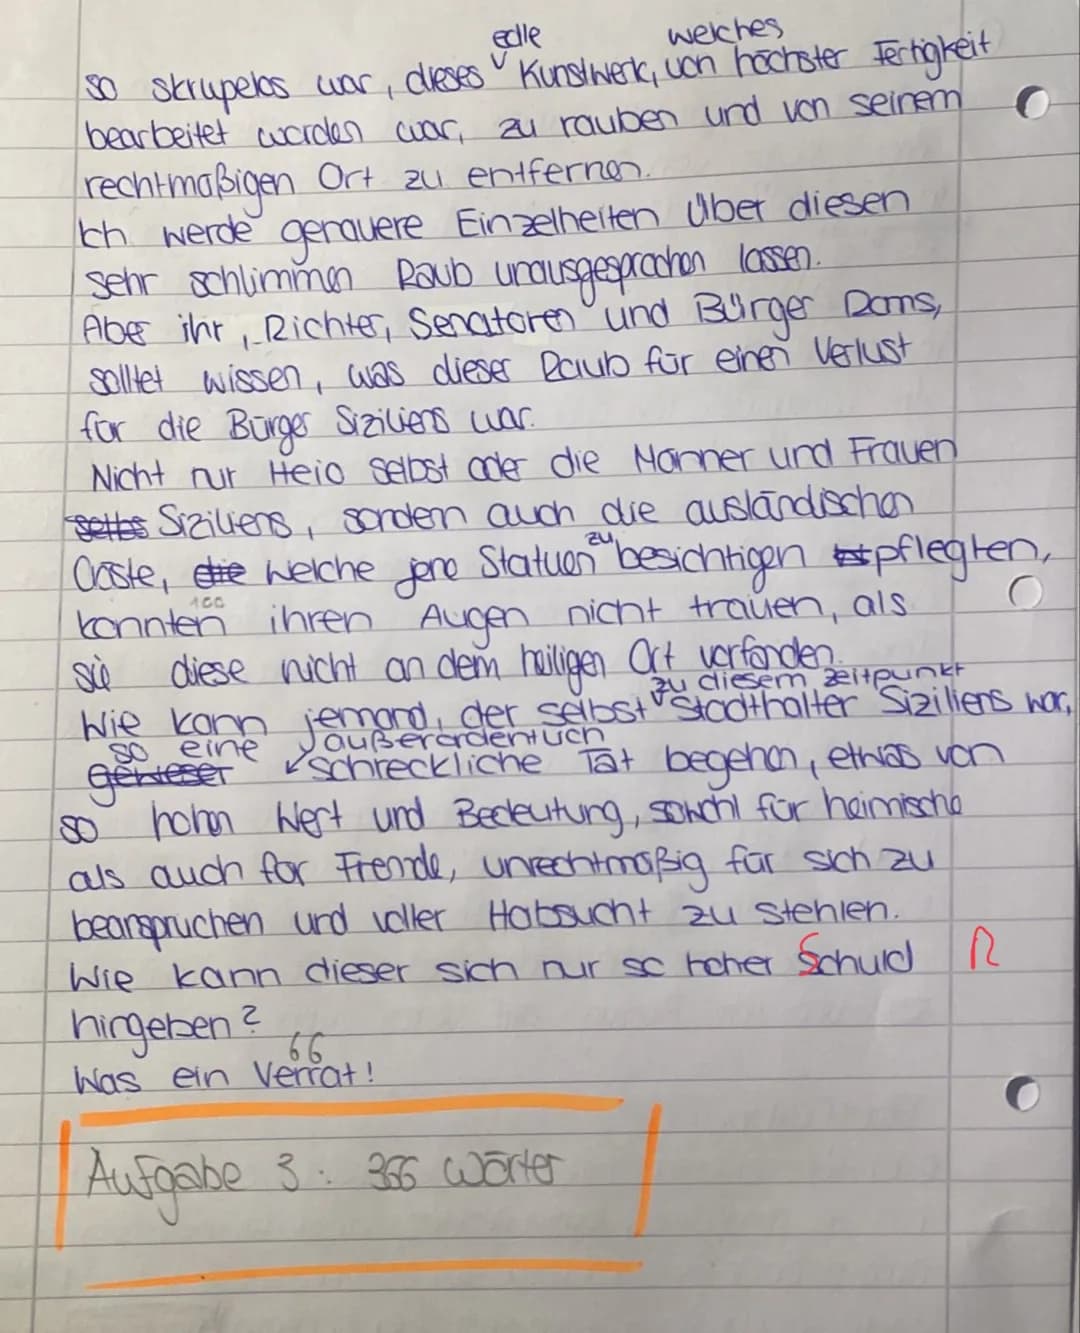 edle welches
so skrupelos war, dieses Kunstwerk, von höchster Fertigkeit
bearbeitet worden war, zu rauben und von seinem
rechtmäßigen Ort zu entfernen.
Ich werde genauere Einzelheiten über diesen
sehr schlimmen Raub unausgesprochen lassen.
Aber ihr, Richter, Senatoren und Bürger Roms,
solltet wissen, was dieser Raub für einen Verlust
für die Bürger Siziliens war.
Nicht nur Heio selbst oder die Männer und Frauen
selbs Siziliens, sondern auch die ausländischen
zu
Gäste, die welche jene Statuen besichtigen pflegten,
100
konnten ihren Augen nicht trauen, als
sie diese nicht an dem heiligen Ort vorfanden.
zu diesem Zeitpunkt
Wie kann jemand, der selbst Stadthalter Siziliens war,
so eine außerordentlich
schreckliche Tat begehen, etwas von
so hohen Wert und Bedeutung, sowohl für heimische
als auch für Fremde, unrechtmäßig für sich zu
beanspruchen und voller Habsucht zu stehlen.
Wie kann dieser sich nur so hoher Schuld R
hingeben?
66
Was ein Verrat!
Aufgabe 3: 366 Wörter